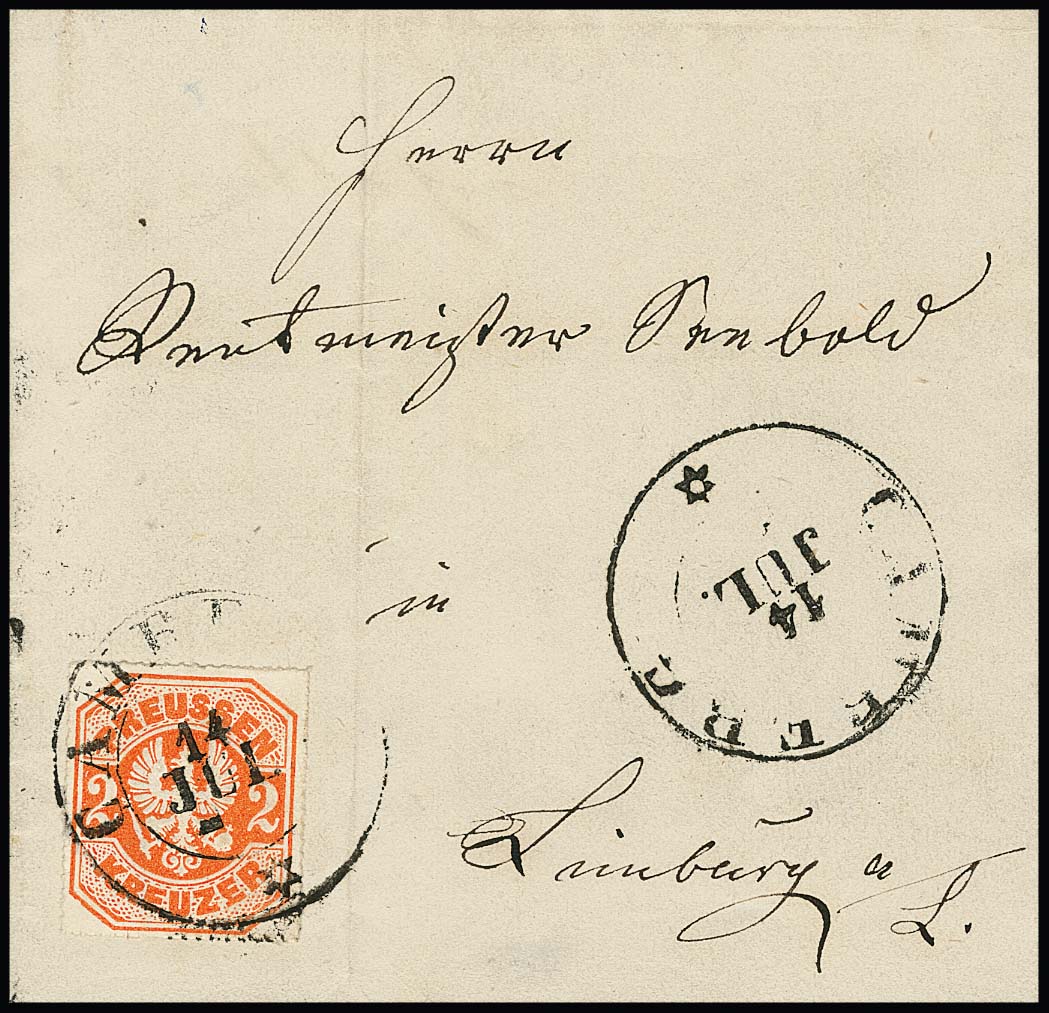 Herrn
Rentmeister Seebold
in
14
JUL.
CAMBERG
PREUSSEN
2 2
KREUZER
14
JUL
Limburg a/L.